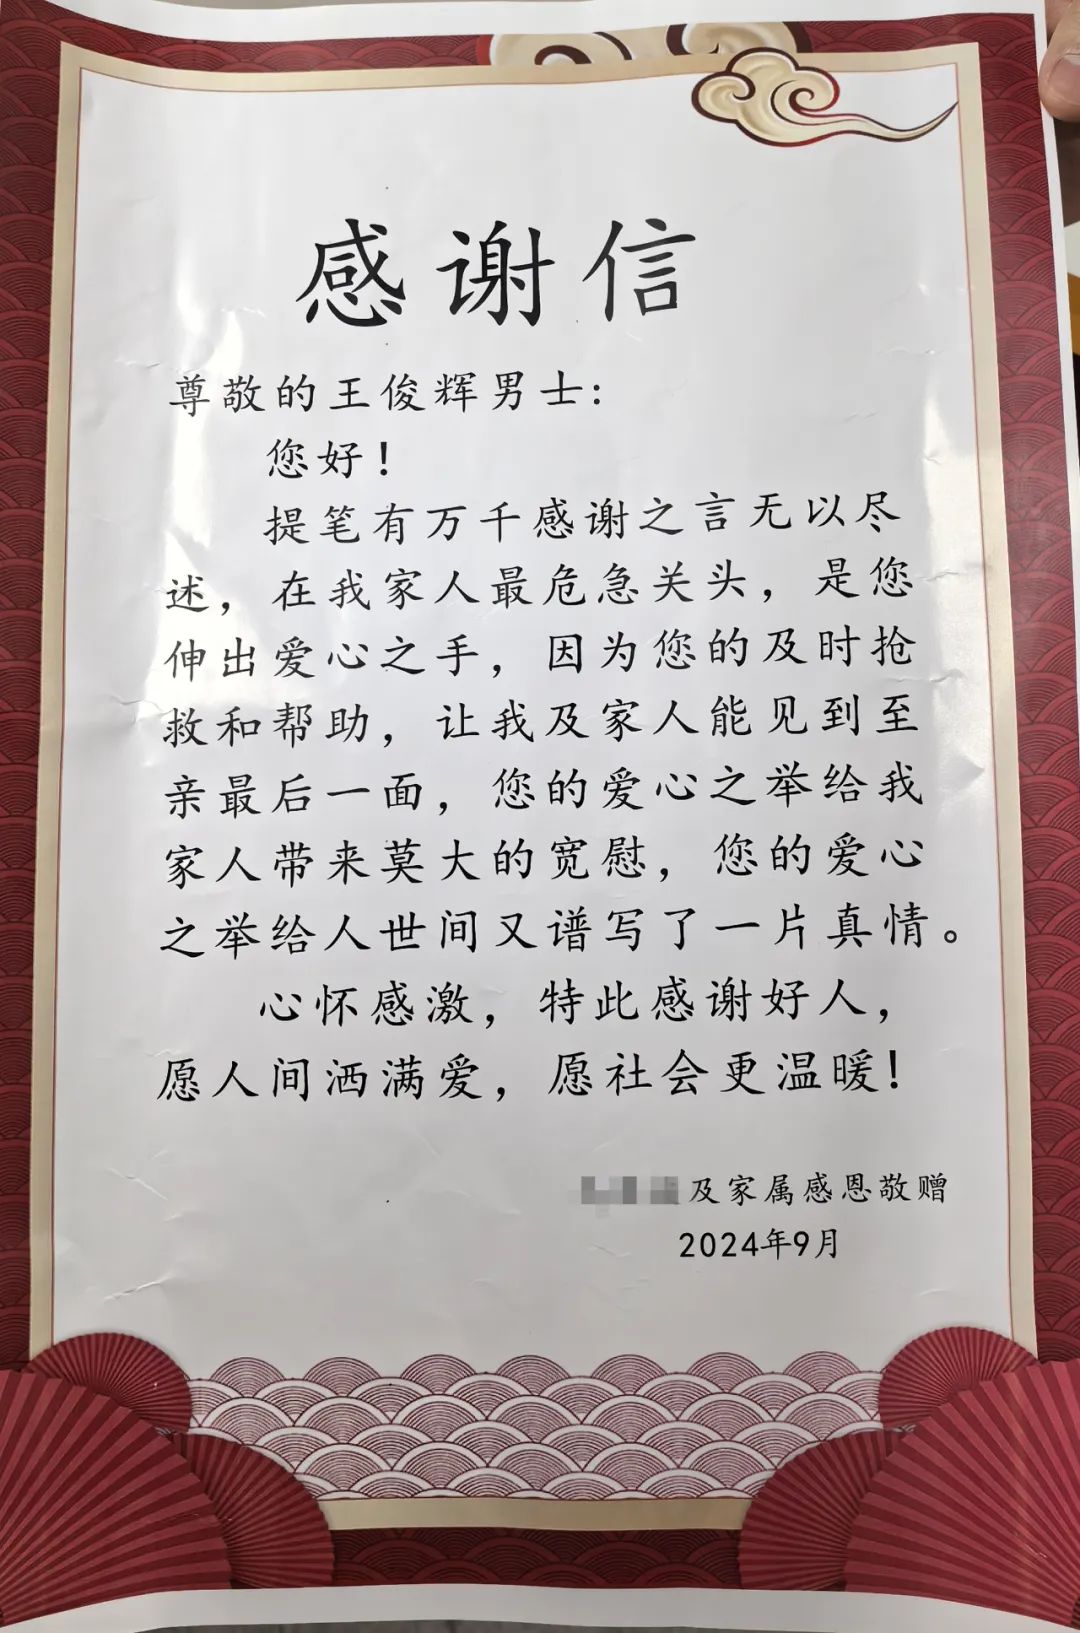 感谢信
尊敬的王俊辉男士：
您好！
提笔有万千感谢之言无以尽
述，在我家人最危急关头，是您
伸出爱心之手，因为您的及时抢
救和帮助，让我及家人能见到至
亲最后一面，您的爱心之举给我
家人带来莫大的宽慰，您的爱心
之举给人世间又谱写了一片真情。
心怀感激，特此感谢好人，
愿人间洒满爱，愿社会更温暖！
及家属感恩敬赠
2024年9月